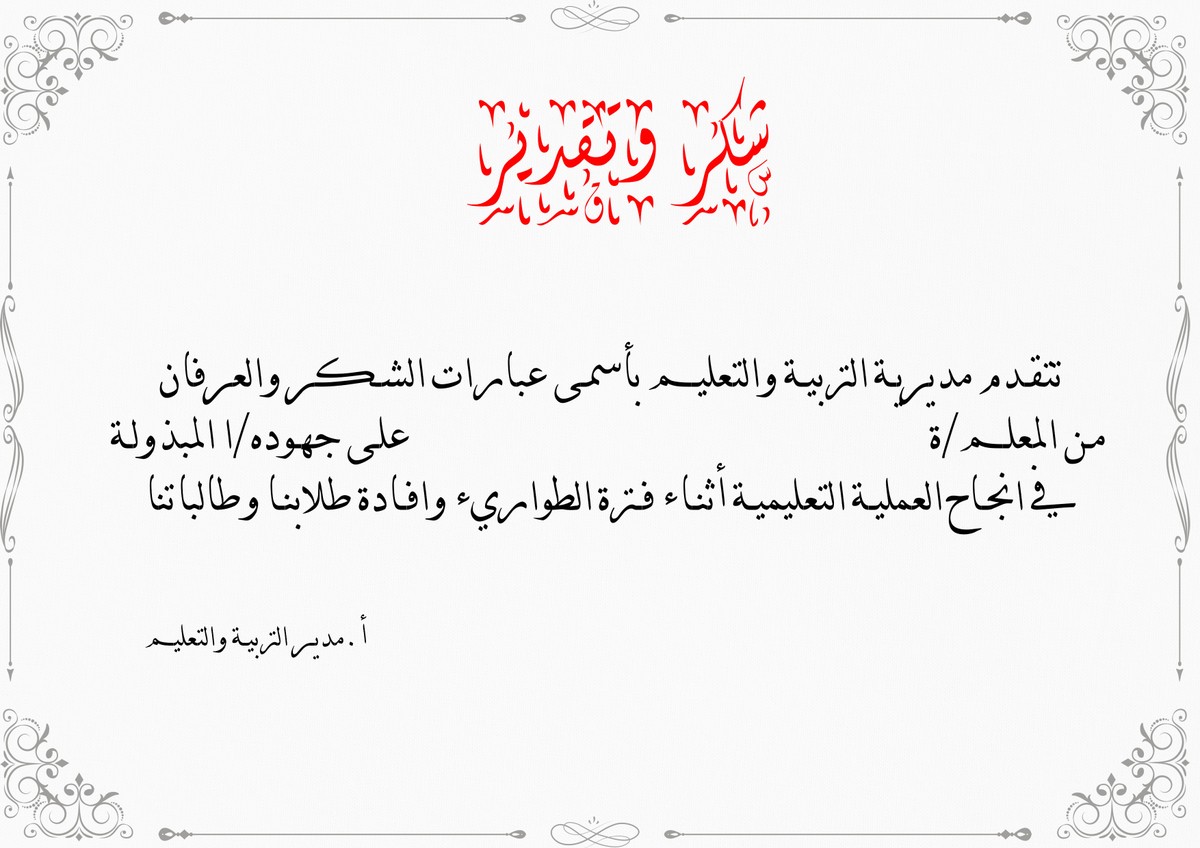 شكر وتقدير
تتقدم مديرية التربية والتعليم بأسمى عبارات الشكر والعرفان
من المعلم/ة على جهوده/ا المبذولة
في انجاح العملية التعليمية أثناء فترة الطواريء وافادة طلابنا وطالباتنا
أ.مدير التربية والتعليم